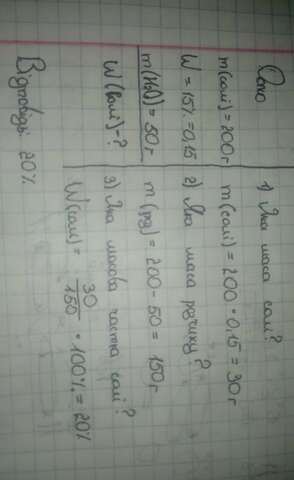 Дано
m(солі)=200г
W=15%=0,15
m(H₂O)=50г
W(солі)-?
1) Яка маса солі?
m(солі)=200·0,15=30г
2) Яка маса розчину?
m(рд)=200-50=150г
3) Яка масова частка солі?
W(солі)= 30/150 ·100%=20%
Відповідь: 20%